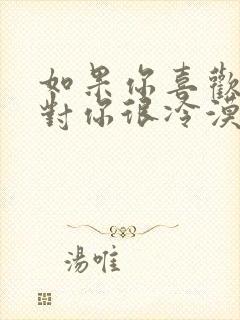 如果你喜歡
對你很冷漠
湯唯